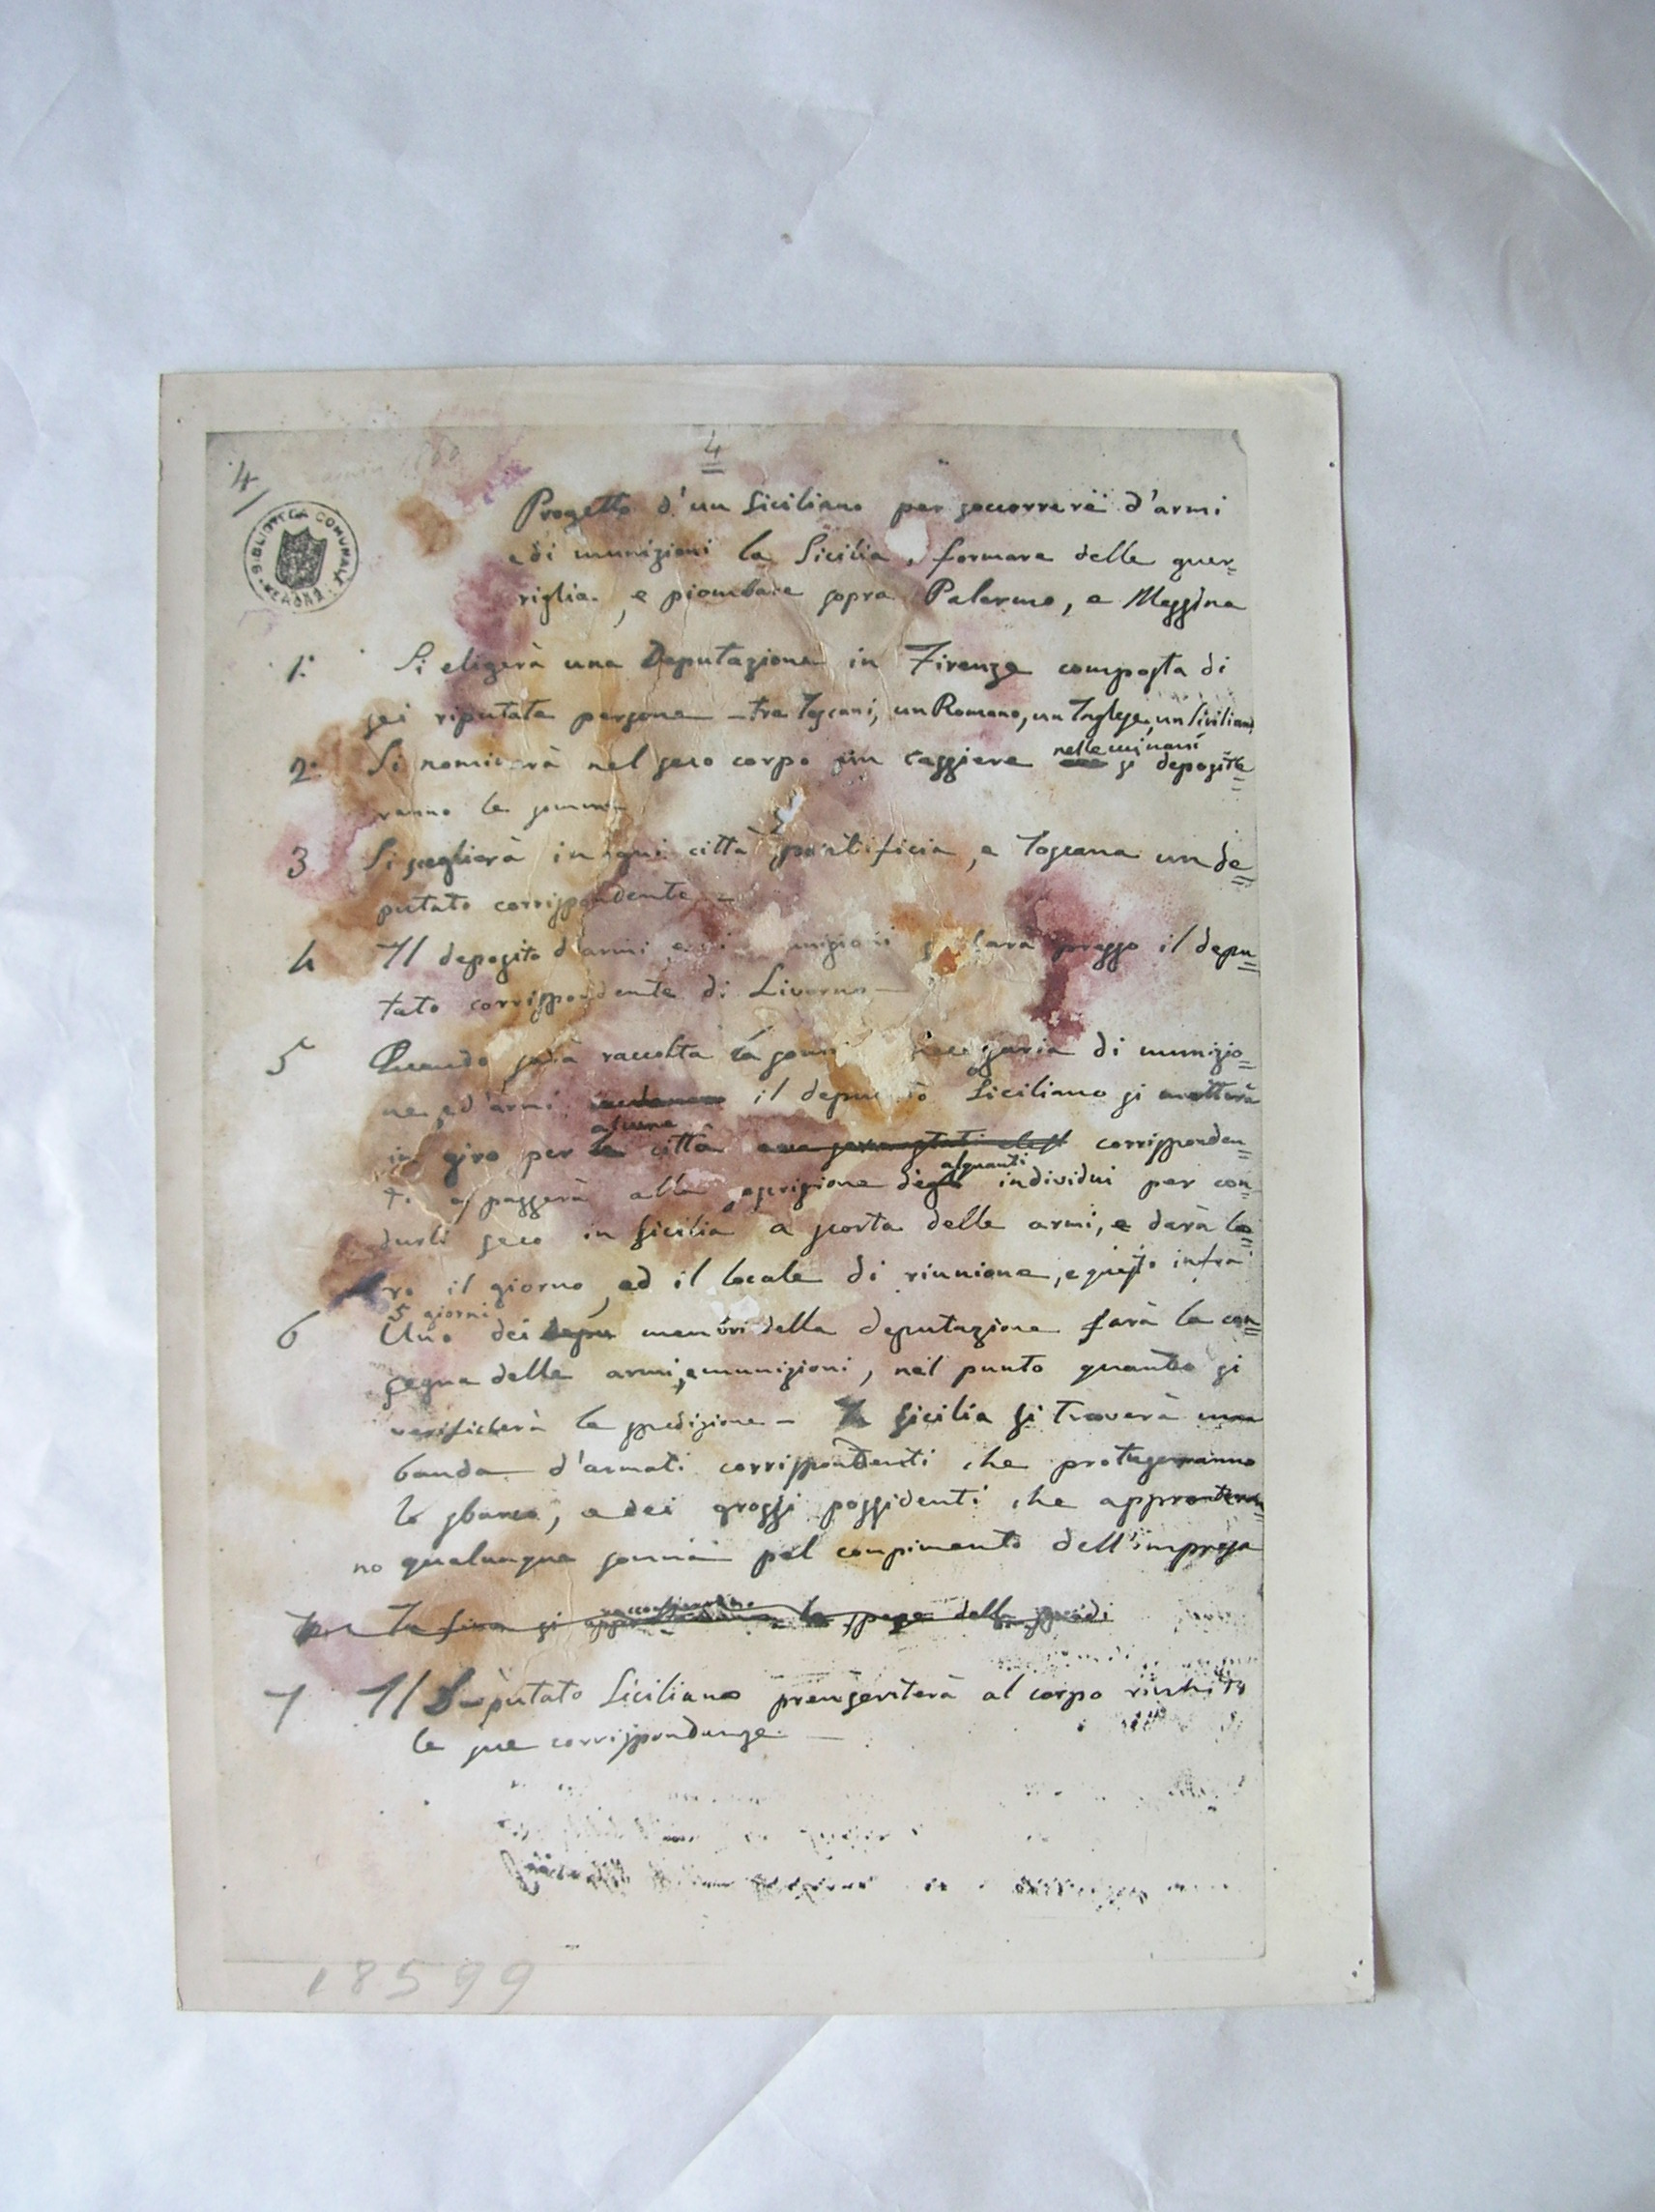 4
4
BIBLIOTECA COMUNALE
Progetto d'un Siciliano per soccorrere d'armi
e di munizioni la Sicilia, formare delle guer=
riglie, e piombare sopra Palermo, e Messina
1. Si eligerà una Deputazione in Firenze composta di
sei riputate persone – tre Toscani, un Romano, un Inglese, un Siciliano
nelle cui mani
2. Si nominerà nel seno corpo un cassiere si deposite=
ranno le somme
3 Si sceglierà in ogni città pontificia, e Toscana un de=
putato corrispondente –
4 Il deposito d'armi, e munizioni si farà presso il depu=
tato corrispondente di Livorno –
5 Quando sarà raccolta la somma necessaria di munizio=
ne, ed armi il deputato Siciliano si metterà
alcune
in giro per le città corrisponden=
alquanti
ti e passerà alla ascrizione degli individui per con=
durli seco in Sicilia a scorta delle armi, e darà lo=
ro il giorno, ed il locale di riunione, e questo infra
5 giorni
6 Uno dei membri della deputazione farà la con=
segna delle armi, e munizioni, nel punto quando si
verificherà la spedizione – In Sicilia si troverà una
banda d'armati corrispondenti che protegeranno
lo sbarco, e dei grossi possidenti che appronteran=
no qualunque somma pel compimento dell'impresa
In fine si la spese delle
7 Il Deputato Siciliano presenterà al corpo riunito
le sue corrispondenze –
18599